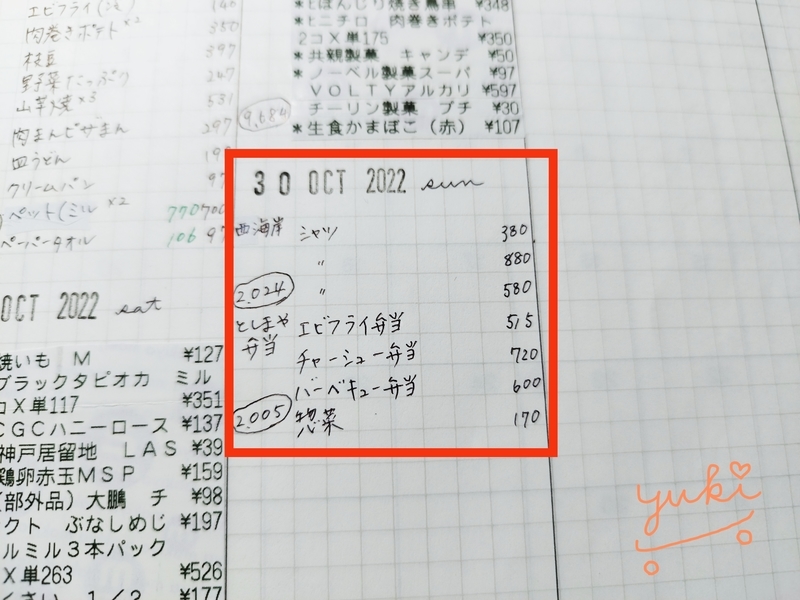 エビフライ(冷) 140
肉巻きポテト×2 350
枝豆 397
野菜たっぷり 247
山芋焼×3 531
肉まんピザまん 297
皿うどん
クリームパン 97
ペット(ミル ×2 770 700
ペーパータオル 106 97
OCT 2022 sat
焼いも M ¥127
ブラックタピオカ ミル
コX単117 ¥351
CGCハニーロース ¥137
神戸居留地 LAS ¥39
鶏卵赤玉MSP ¥159
(部外品)大鵬 チ ¥98
クト ぶなしめじ ¥197
ルミル3本パック
X単263 ¥526
くさい 1/2 ¥177
*ぼんじり焼き鳥串 ¥348
*ヒニチロ 肉巻きポテト
2コX単175 ¥350
*共親製菓 キャンデ ¥50
*ノーベル製菓スーパ ¥97
VOLTYアルカリ ¥597
チーリン製菓 プチ ¥30
*生食かまぼこ(赤) ¥107
9,684
30 OCT 2022 sun
西海岸 シャツ 380
〃 880
2,024 〃 580
としまや エビフライ弁当 515
弁当 チャーシュー弁当 720
バーベキュー弁当 600
2,005 惣菜 170
yuki